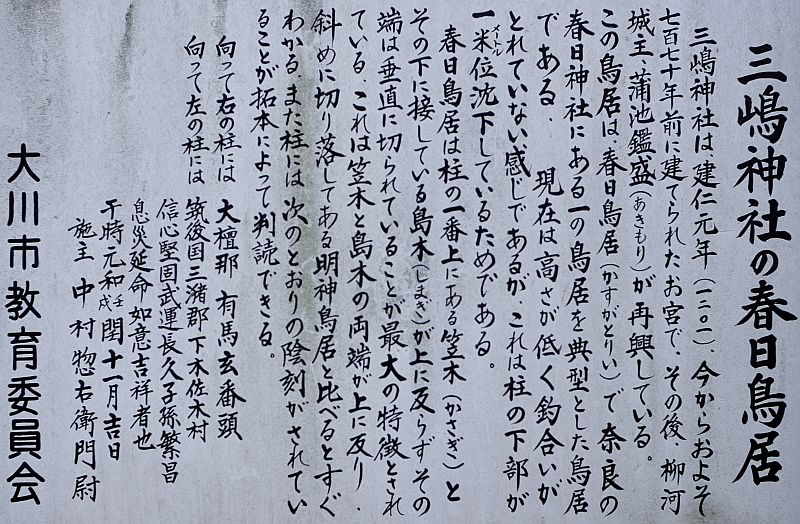 三嶋神社の春日鳥居
三嶋神社は建仁元年(一二〇一)、今からおよそ
七百七十年前に建てられたお宮で、その後、柳河
城主、蒲池鑑盛(あきもり)が再興している。
この鳥居は、春日鳥居(かすがとりい)で奈良の
春日神社にある一の鳥居を典型とした鳥居
である。現在は高さが低く釣合いが
とれていない感じであるが、これは柱の下部が
一米位沈下しているためである。
メートル
春日鳥居は柱の一番上にある笠木(かさぎ)と
その下に接している島木(しまぎ)が上に反らずその
端は垂直に切られていることが最大の特徴とされ
ている。これは笠木と島木の両端が上に反り、
斜めに切り落してある明神鳥居と比べるとすぐ
わかる。また柱には次のとおりの陰刻がされてい
ることが拓本によって判読できる。
向って右の柱には 大檀那 有馬玄番頭
向って左の柱には 筑後国三瀦郡下木佐木村
信心堅固武運長久子孫繁昌
息災延命如意吉祥者也
于時元和壬戌閏十一月吉日
施主 中村惣右衛門尉
大川市教育委員会